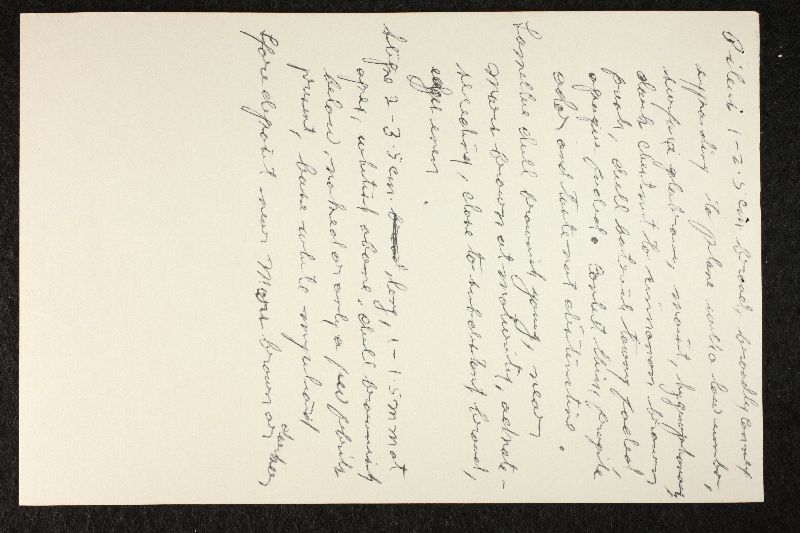 Pileus 1-2.5 cm broad, broadly convex
expanding to plane with a low umbo,
surface glabrous, moist, hygrophanous
dark chestnut to cinnamon brown
fresh, dull brownish tawny faded
opaque faded. Context thin, fragile
odor and taste not distinctive.
Lamellae dull brownish young, near
Mars brown at maturity, adnate-
seceding, close to subdistant, broad,
edges even.
Stipe 2-3.5 cm long, 1-1.5 mm at
apex, whitish above, dull brownish
below, naked or only a few fibrils
present, base white mycelioid
Spore deposit near Mars brown or darker